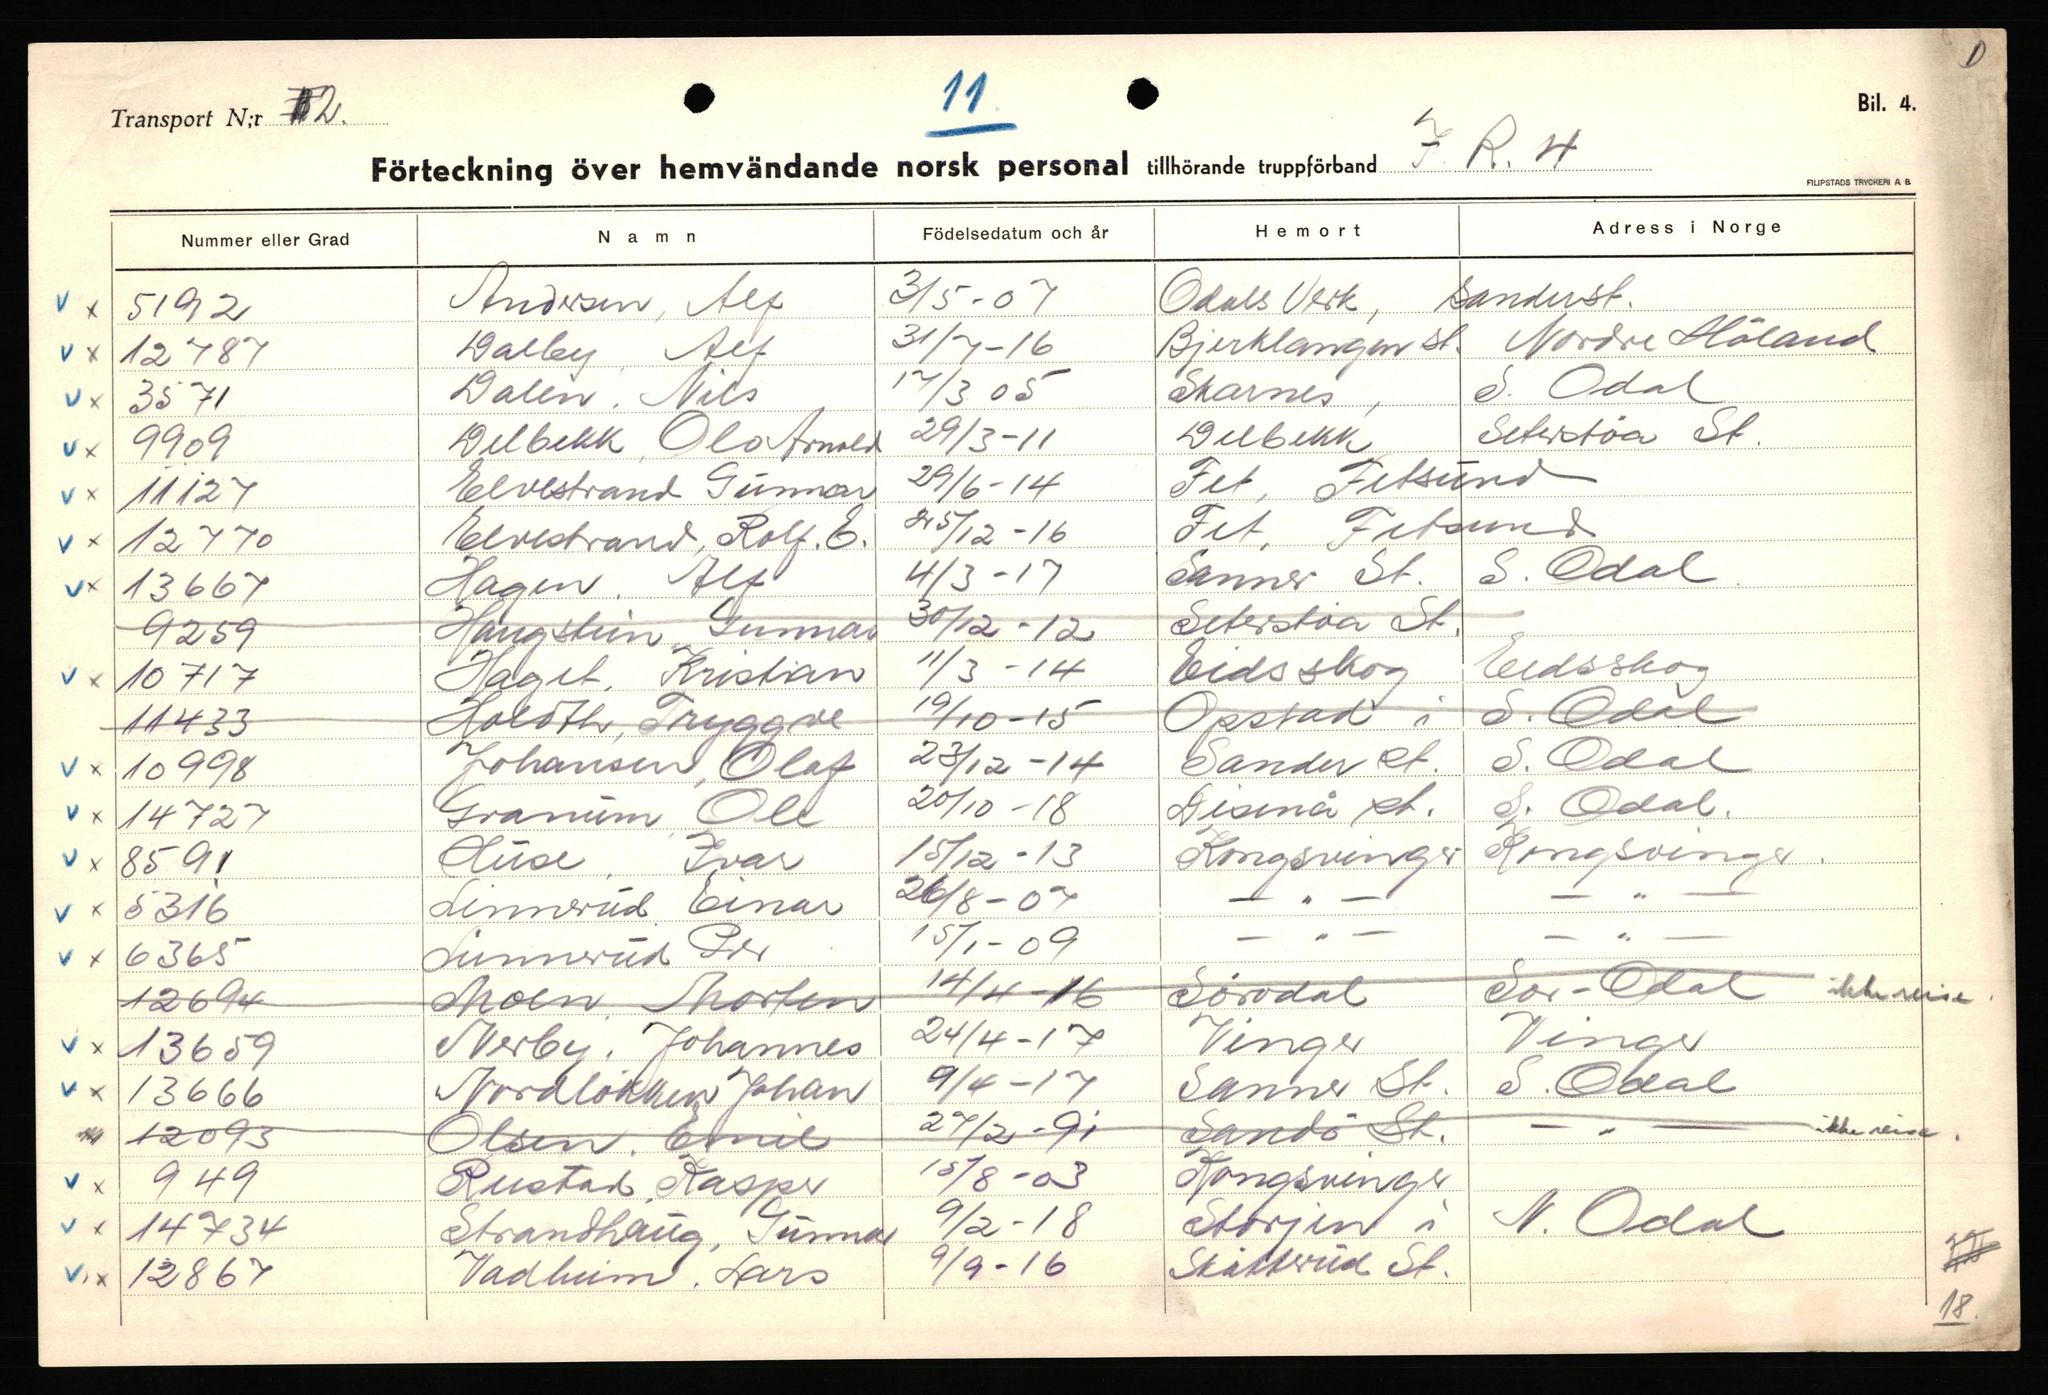 D
11.
Bil. 4.
Transport N;r 2.
Förteckning över hemvändande norsk personal tillhörande truppförband J. R. 4
FILIPSTADS TRYCKERI A. B.
Nummer eller Grad Namn Födelsedatum och år Hemort Adress i Norge
v x 5192 Andersen, Alf 3/5-07 Odals Verk, Sanderst.
v x 12787 Dalby, Alf 31/7-16 Bjerklangen st. Nordre Höland
v x 3571 Dalen, Nils 17/3 05 Skarnes, S. Odal
v x 9909 Delbekk, Ola Arnold 29/3-11 Delbekk Seterstöa St.
v x 11127 Elvestrand Gunnar 29/6-14 Fet, Fetsund
v x 12770 Elvestrand, Rolf. E. 25/12-16 Fet, Fetsund
v x 13667 Hagen, Alf 4/3-17 Sanner St. S. Odal
9259 Haugstein, Gunnar 30/12-12 Seterstöa St.
v x 10717 Haget, Kristian 11/3-14 Eidsskog Eidsskog
11433 Holôth, Tryggve 19/10-15 Opstad i S. Odal
v x 10998 Johansen, Olaf 23/12-14 Sander st. S. Odal
v x 14727 Granum, Ole 20/10-18 Disenå st. S. Odal.
v x 8591 Huse, Ivar 15/12-13 Kongsvinger Kongsvinger.
v x 5316 Linnerud Einar 26/8-07 — " — — " —
v x 6365 Linnerud Per 15/1-09 — " — — " —
12694 Moen, Morten 14/4-16 Sörodal Sör-Odal ikke reise.
v x 13659 Nerby, Johannes 24/4-17 Vinger Vinger
v x 13666 Nordlökken, Johan 9/4-17 Sanner St. S. Odal
12093 Olsen, Emil 27/2-91 Sandö St. — " — ikke reise.
v x 949 Rustad, Kasper 15/8-03 Kongsvinger
v x 14734 Strandhaug, Gunnar 9/2-18 Storjen i N. Odal
v x 12867 Vadheim, Lars 9/9-16 Skotterud St.
18.